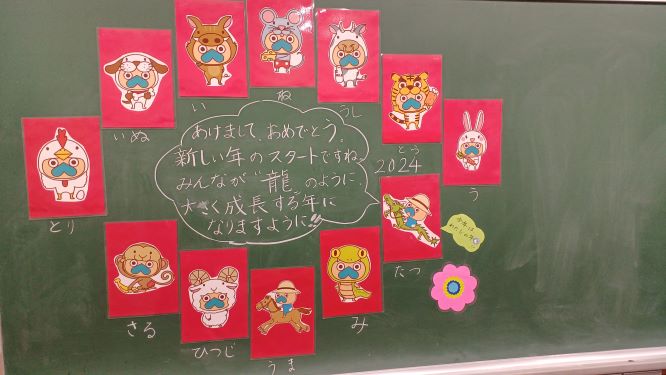 い
ね
うし
いぬ
とら
とり
う
あけまして、おめでとう。
新しい年のスタートですね。
みんなが“龍”のように、
大きく成長する年に
なりますように!!
2024
今年は
たつ
さる
ひつじ
うま
み